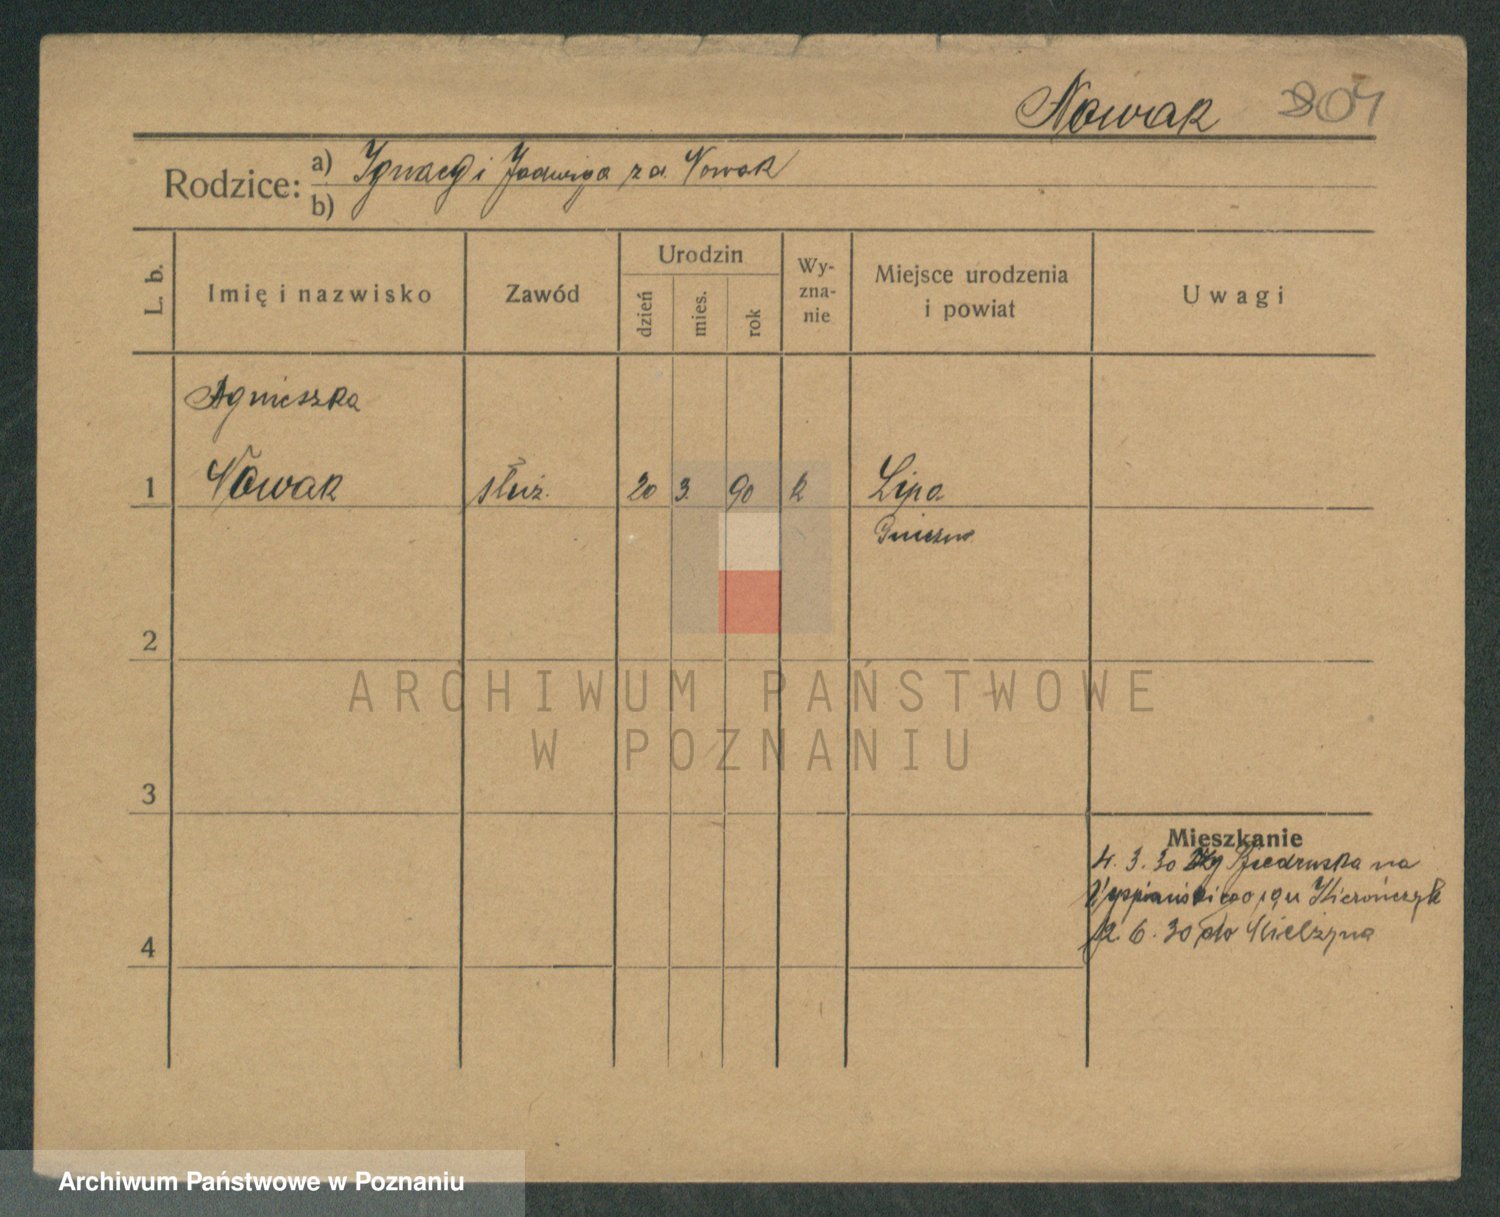 Nowak 804
Rodzice: a) Ignacy i Jadwiga za. Nowak
b)
L. b.
Imię i nazwisko
Zawód
Urodzin
dzień
mies.
rok
Wy-
zna-
nie
Miejsce urodzenia
i powiat
Uwagi
Agnieszka
1 Nowak służ. 20 3. 90 k Lipa
Gniezno
2
ARCHIWUM PAŃSTWOWE
W POZNANIU
3
Mieszkanie
4. 3. 30 Biedruska na
Wyspiańskiego
12. 6. 30 do Kielżyna
4
Archiwum Państwowe w Poznaniu